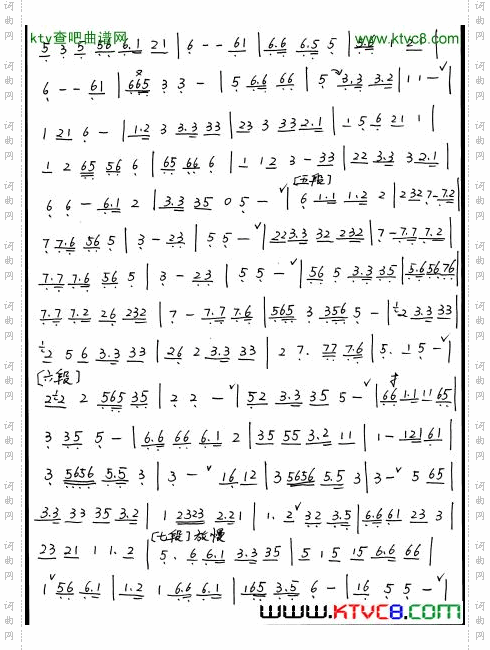 ktv查吧曲谱网 www.ktvc8.com
5 3 5 56 6.1 21 | 6 - - 61 | 6.6 6.5 5 |
6 - - 61 | 665 3 3 - | 5 6.6 66 | 5 3.3 3.2 | 1 1 - ˅ |
1 21 6 - | 1.2 3 3.3 33 | 23 3 33 2.1 | 1 5 6 21 1
1 2 65 56 6 | 65 66 6 | 1 1 2 3 - 33 | 22 3.3 3 2.1 |
[五段]
6 6 - 6.1 2 | 3.3 35 0 5 - ˅ | 6 1.1 1.2 2 | 232 7- 7.2 |
7 7.6 56 5 | 3 - 23 | 5 5 - ˅ | 223.3 32 232 | 7 - 7.7 7.2 |
7.7 7.6 56 5 | 3 - 23 | 5 5 - ˅ | 56 5 3.3 35 | 5.65676 |
7.7 7.2 26 232 | 7 - 7.7 7.6 | 565 3 356 5 - | ½2 3.3 33
½2 5 6 3.3 33 | 26 2 3.3 33 | 2 7. 77 7.6 | 5. 15 - ˅ |
[六段]
2½2 2 565 35 | 2 2 - ˅ | 52 3.3 35 5 - ˅ | 66 1.1 11 65 |
3 35 5 - | 6.6 66 6.1 2 | 35 55 3.2 11 | 1 - 121 61 |
3 5656 5.5 3 | 3 - ˅ 16 12 | 3 5656 5.5 3 | 3 - ˅ 5 65 |
3.3 33 35 3.2 | 1 2323 2.21 | 1. 2 ˅ 32 3.5 | 6.661 23 3 |
[七段] 放慢
23 21 1 1. 2 | 5. 6 6.1 3.3 35 | 5 15 15 6.6 66 |
1 ˅ 56 6.1 | 1.2 1 6.6 6.1 | 165 3.5 6 - | 16 5 5 - ˅ |
www.KTVC8.com
词曲网